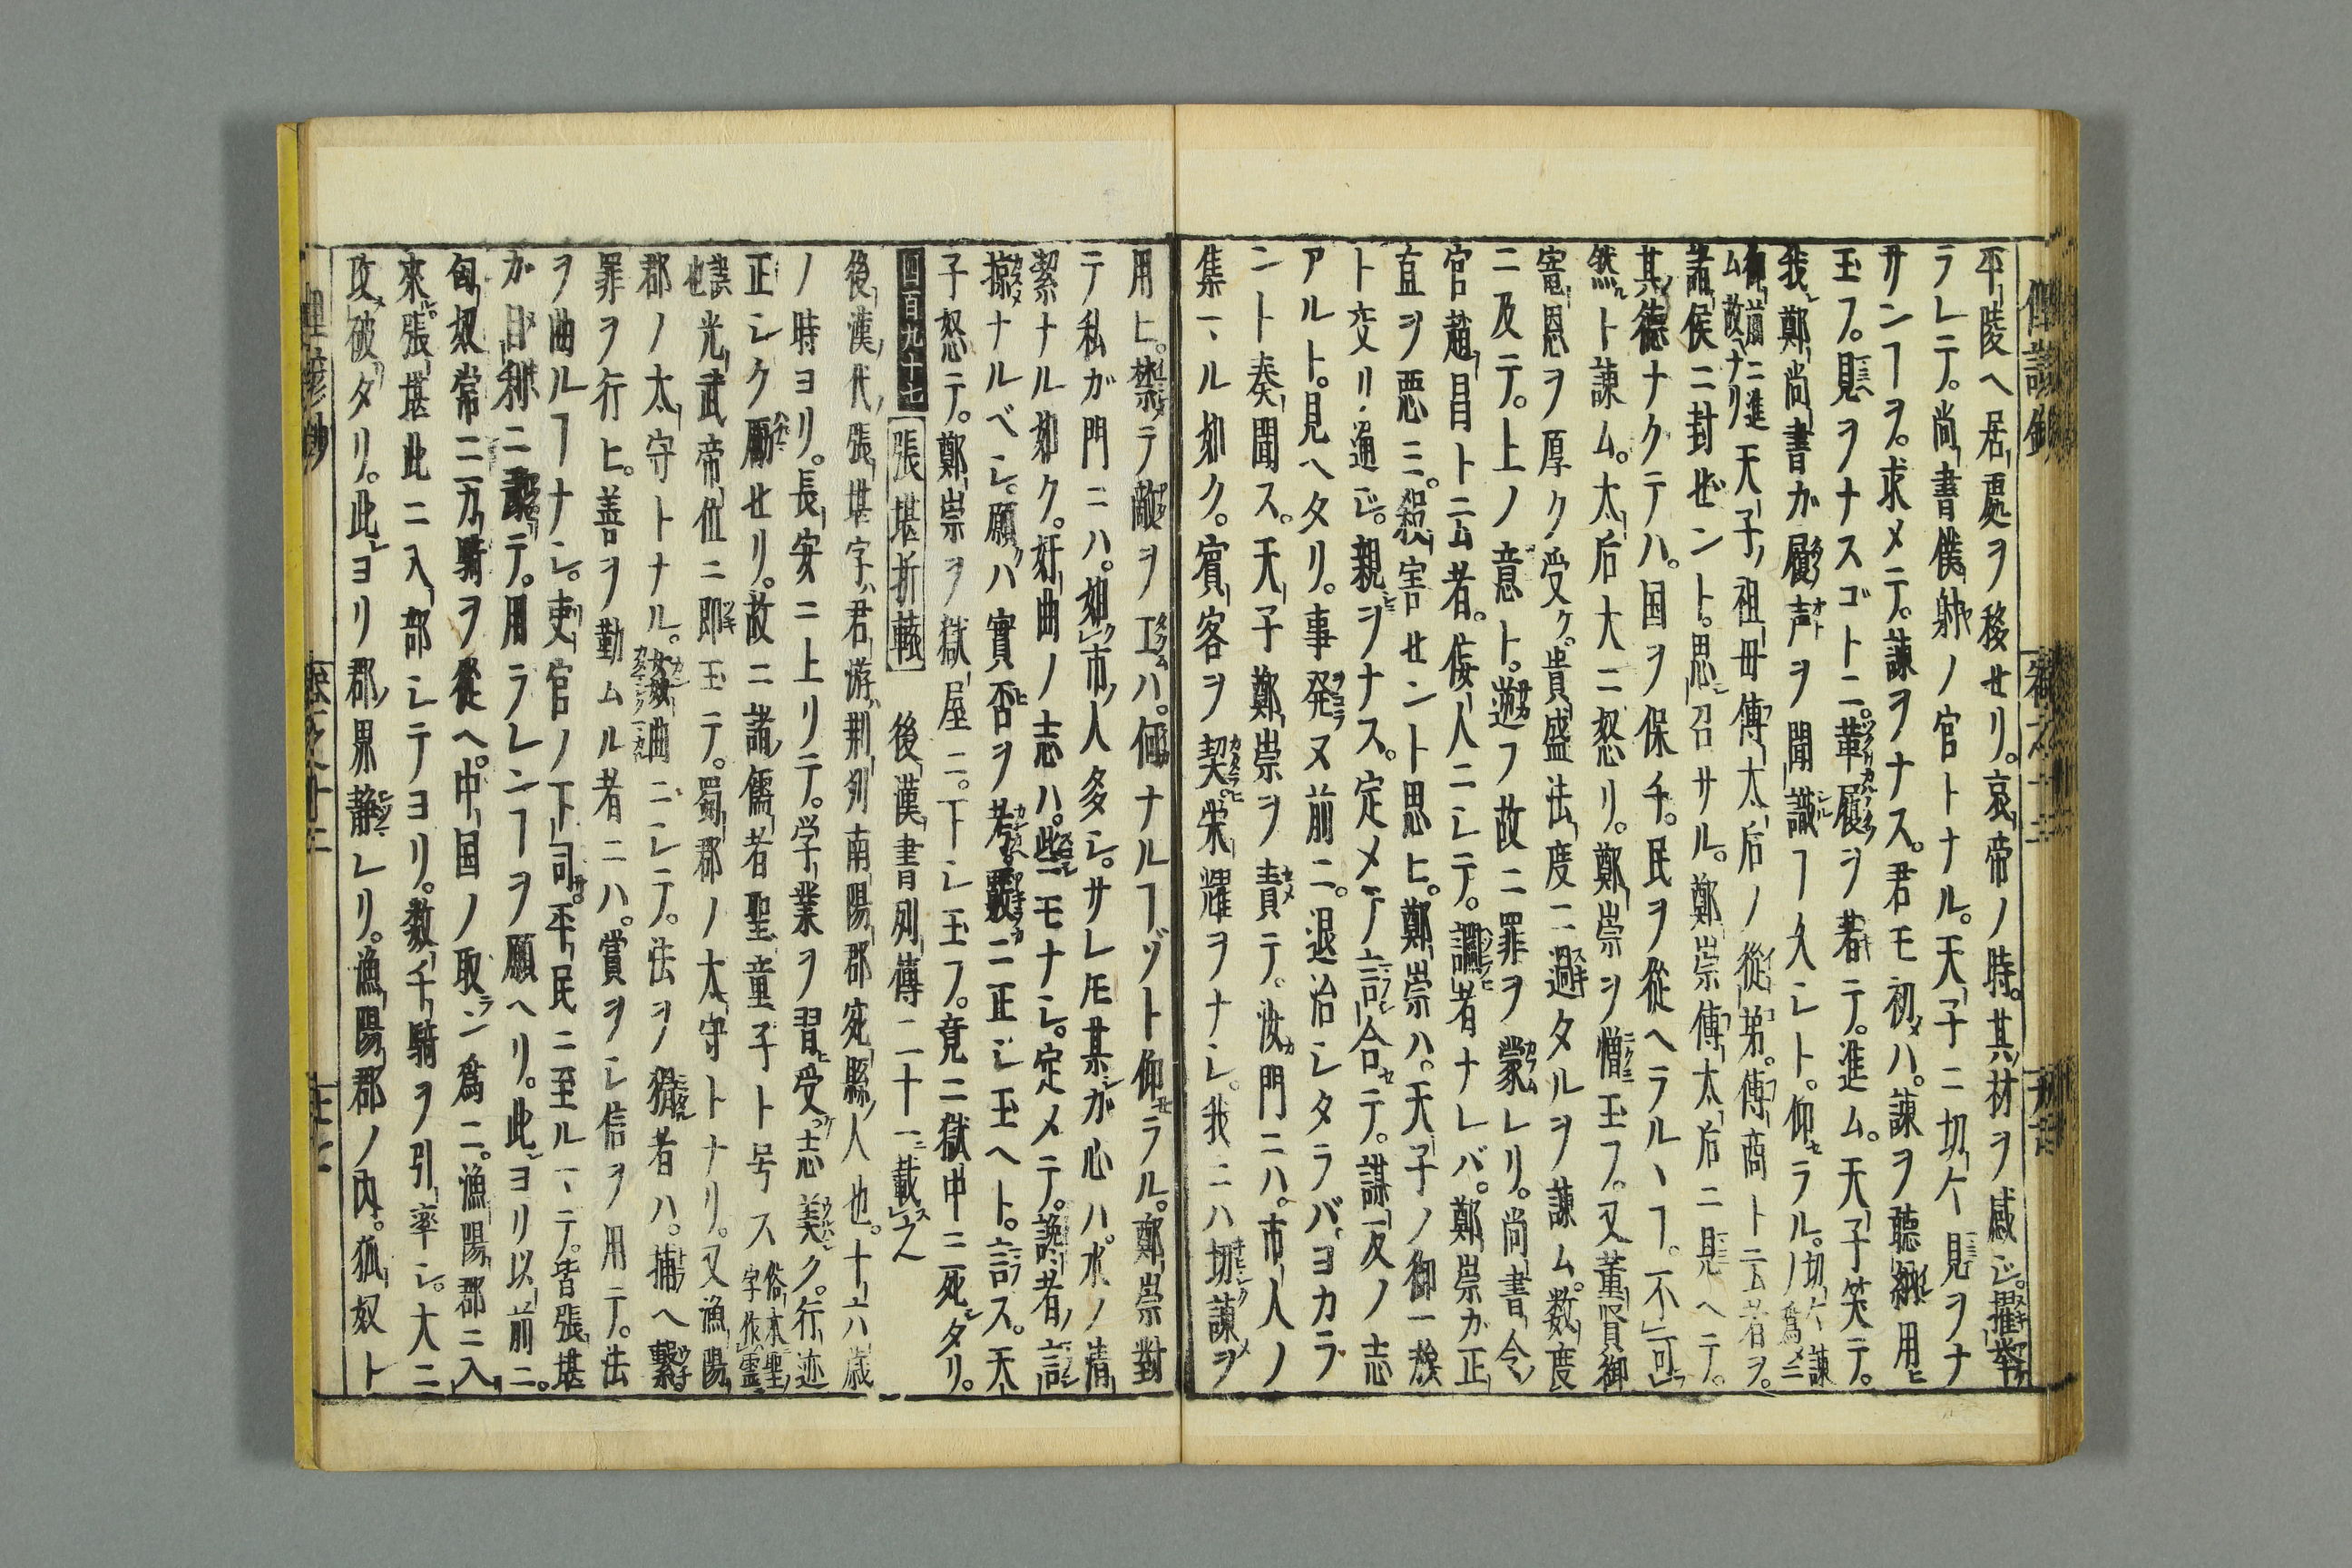 平陵へ居處ヲ移セリ。哀帝ノ時。其材ヲ感ジ。擢挙
ラレテ。尚書僕射ノ官トナル。天子ニ切々見ヲナ
サンヿヲ。求メテ。諌ヲナス。君モ初ハ。諌ヲ聴納用ヒ
玉フ。見ヲナスゴトニ。革履ヲ著テ。進ム。天子笑テ。
我鄭尚書ガ履声ヲ聞識ヿ久シト。仰ラル。切々諌ノ爲ニ
御前ニ進ム故ナリ天子ノ祖母傅太后ノ從弟。傅商ト云者ヲ。
諸侯ニ封ゼント。思召サル。鄭崇傅太后ニ見ヘテ。
其德ナクテハ。国ヲ保チ。民ヲ從ヘラルヽヿ。不可
然ト諌ム。太后大ニ怒リ。鄭崇ヲ憎玉フ。又董賢御
寵恩ヲ厚ク受ケ。貴盛法度ニ過タルヲ諌ム。数度
ニ及テ。上ノ意ト。遊フ故ニ罪ヲ蒙レリ。尚書令
官趙昌ト云者。佞人ニシテ。讇者ナレバ。鄭崇カ正
直ヲ悪ミ。殺害セント思ヒ。鄭崇ハ。天子ノ御一族
ト交リ通ジ。親ヲナス。定メテ言合テ。謀反ノ志
アルト。見ヘタリ。事発ヌ前ニ。退治シタラバ。ヨカラ
ント奏聞ス。天子鄭崇ヲ責テ。汝門ニハ。市人ノ
集ヽル如ク。賓客ヲ契栄耀ヲナシ。我ニハ切諌ヲ
用ヒ。禁テ敵ヲエハ。何ナルヿゾト仰ラル。鄭崇對
テ私ガ門ニハ。如市人多シ。サレ𪜈某ガ心ハ。水ノ清
潔ナル如ク。奸曲ノ志ハ。些モナシ。定メテ。讒者ノ言
掠ナルベシ。願ハ實否ヲ考。覈ニ正シ玉ヘト。言ス。天
子怒テ。鄭崇ヲ獄屋ニ。下シ玉フ。竟ニ獄中ニ死タリ。
四百九十七 張堪折轅 後漢書列傳二十一載之
後漢代張堪字君游荊列南陽郡宛縣人也。十六歳
ノ時ヨリ。長安ニ上リテ。学業ヲ習受。志美ク。行迹
正シク勵セリ。故ニ諸儒者聖童子ト号ス 俗本聖字作靈
誤也 光武帝位ニ即玉テ。蜀郡ノ太守トナリ。又漁陽
郡ノ太守トナル。姦曲ニシテ。法ヲ猾者ハ。捕ヘ繋
罪ヲ行ヒ。善ヲ勤ムル者ニハ。賞ヲシ信ヲ用テ。法
ヲ曲ルヿナシ。吏官ノ下司。平民ニ至ルヽテ。皆張堪
ガ目利ニテ。用ラレンヿヲ願ヘリ。此ヨリ以前ニ。
匈奴常ニ力騎ヲ從ヘ。中国ノ取ン爲ニ。漁陽郡ニ入
來。張堪此ニ入部シテヨリ。数千騎ヲ引率シ。大ニ
攻破タリ。此ヨリ郡界静レリ。漁陽郡ノ内。狐奴ト